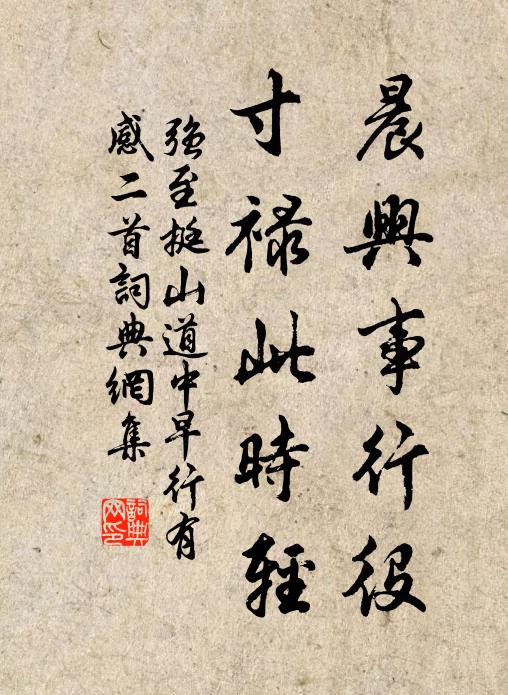 晨興事行役
寸祿此時輕
強至挺山道中早行有
感二首詞典網集
詞典
网印